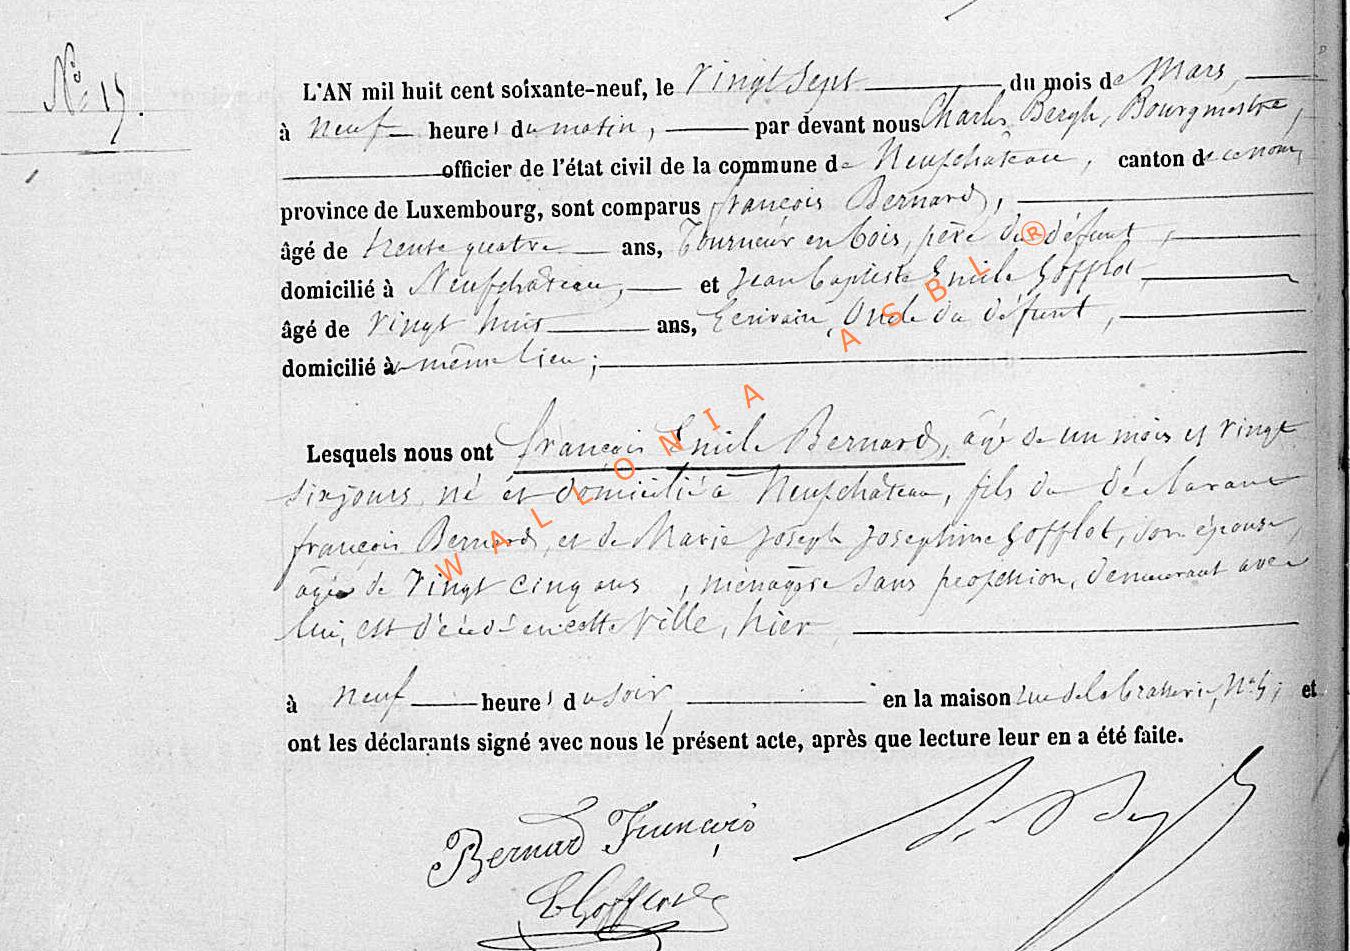 No 17.
L'AN mil huit cent soixante-neuf, le vingt sept du mois de Mars,
à neuf heures du matin, par devant nous Charles Bergh, Bourgmestre,
officier de l'état civil de la commune de Neufchâteau, canton de ce nom,
province de Luxembourg, sont comparus françois Bernard,
âgé de trente quatre ans, Tourneur en bois, père du défunt,
domicilié à Neufchâteau, et Jean baptiste Emile Gofflot,
âgé de vingt huit ans, Ecrivain, Oncle du défunt,
domicilié à même lieu;
Lesquels nous ont françois Emile Bernard, âgé de un mois et vingt
six jours, né et domicilié à Neufchâteau, fils du déclarant
françois Bernard, et de Marie Joseph Josephine Gofflot, son épouse,
âgée de vingt cinq ans, ménagère sans profession, demeurant avec
lui, est décédé en cette ville, hier
à neuf heures du soir, en la maison rue de la brasserie, No 5; et
ont les déclarants signé avec nous le présent acte, après que lecture leur en a été faite.
Bernard François
WALLONIA ASBL ®